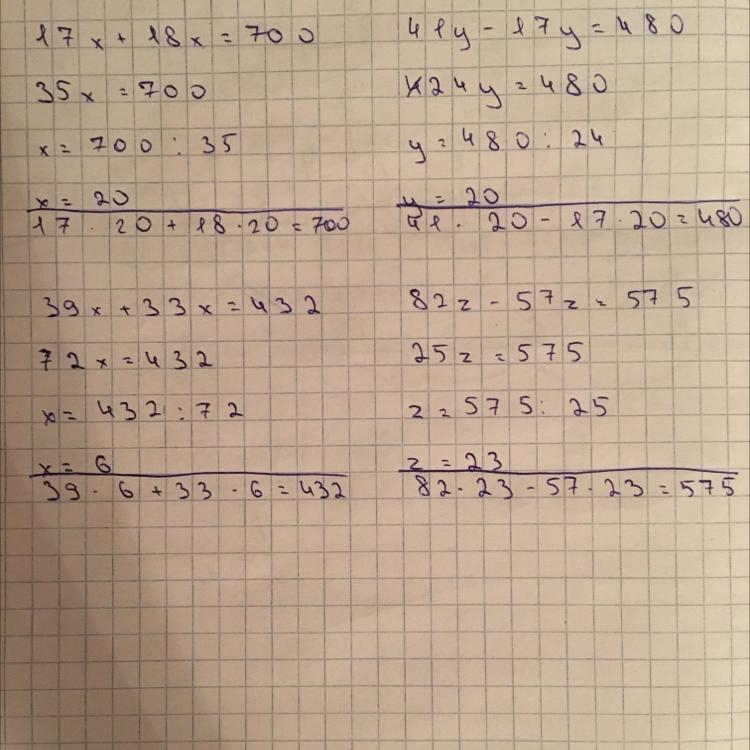 17x + 18x = 700
35x = 700
x = 700 : 35
x = 20
17 · 20 + 18 · 20 = 700
41y - 17y = 480
24y = 480
y = 480 : 24
y = 20
41 · 20 - 17 · 20 = 480
39x + 33x = 432
72x = 432
x = 432 : 72
x = 6
39 · 6 + 33 · 6 = 432
82z - 57z = 575
25z = 575
z = 575 : 25
z = 23
82 · 23 - 57 · 23 = 575